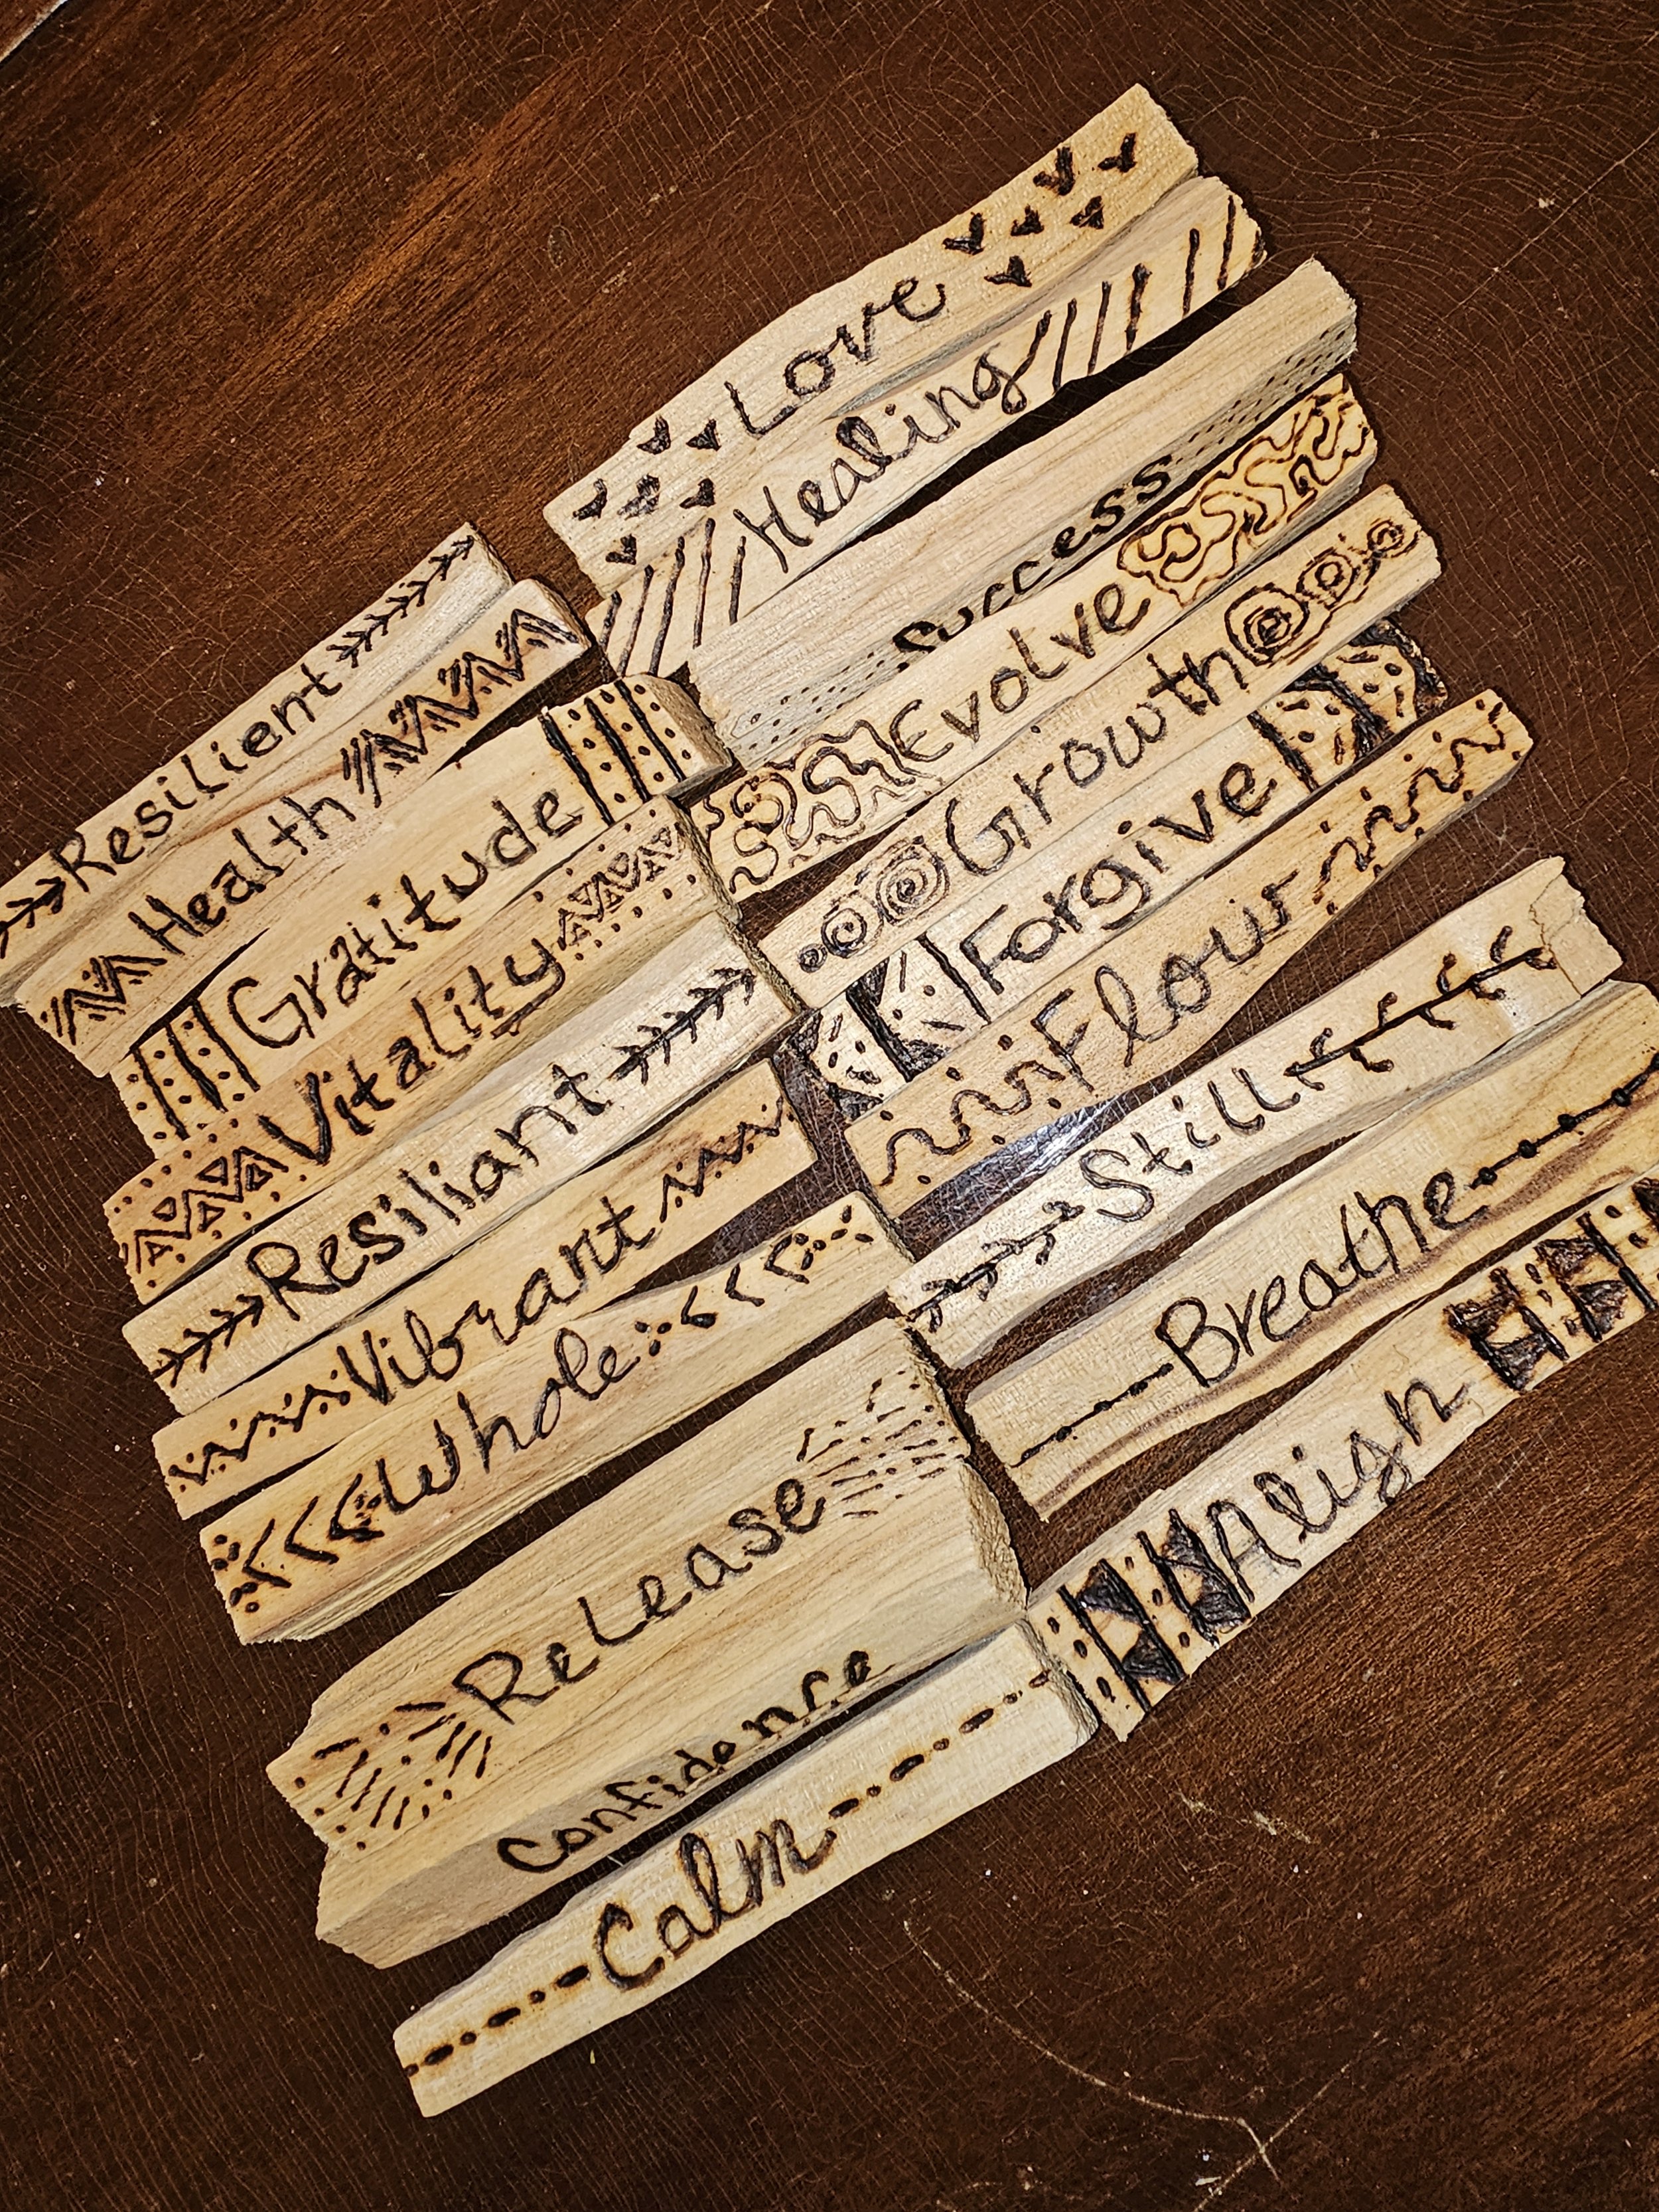 Love
Healing
Success
Evolve
Growth
Forgive
Flow
Still
Breathe
Align
Resilient
Health
Gratitude
Vitality
Resiliant
Vibrant
Whole
Release
Confidence
Calm